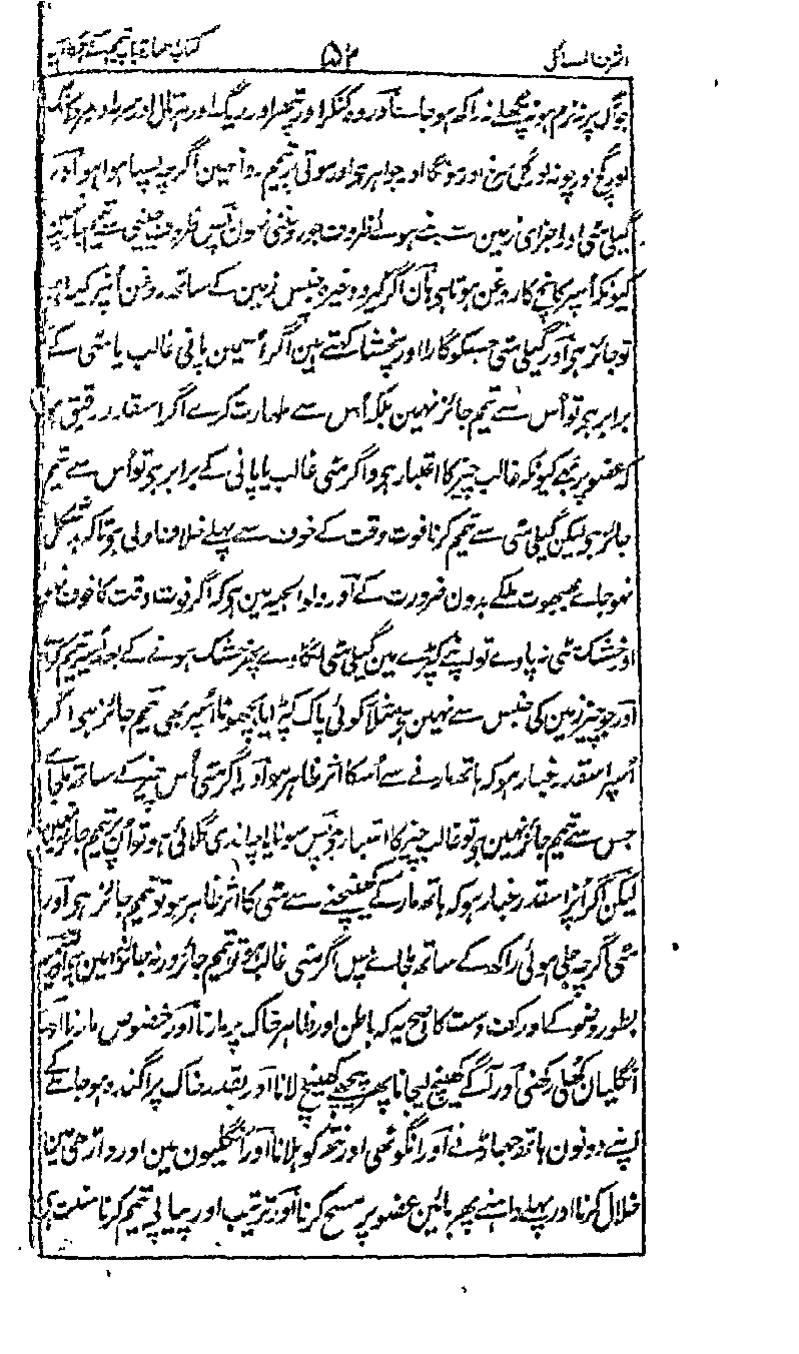 اشرف المسائل ۵۲ کتاب طہارۃ باب تیمم
جو آگ پر نہ نرم ہو نہ پگھلے نہ راکھ ہو جائے اور وہ کنکر اور پتھر اور ریگ اور ہڑتال اور سرمہ اور
اور گچ اور چونہ اور گل سرخ اور مونگا اور جواہر اور موتی پر تیمم روا نہین اگرچہ پسا ہوا ہو اور
گیلی مٹی اور اجزای زمین سے بنے ہوئے ظروف جو روغنی نہون پس ظروف چینی سے تیمم جائز نہین
کیونکہ اسپر کانچ کا روغن ہوتا ہی ہان اگر گیرو وغیرہ جنس زمین کے ساتھ روغن اُسپر کیا ہو
تو جائز ہی اور گیلی مٹی جسکو گارا اور کہتے ہین اگر اُسمین پانی غالب یا مٹی کے
برابر ہی تو اُس سے تیمم جائز نہین بلکہ اُس سے طہارت کرے اگر اسقدر رقیق ہو
کہ عضو پر بہے کیونکہ غالب چیز کا اعتبار ہی و اگر مٹی غالب یا پانی کے برابر ہی تو اُس سے تیمم
جائز ہی لیکن گیلی مٹی سے تیمم کرنا فوت وقت کے خوف سے پہلے خلاف اولی ہی تاکہ بشکل
نہو جاے بھبوت ملکے بدون ضرورت کے اور ولوالجیہ مین ہی کہ اگر فوت وقت کا خوف نہو
اور خشک مٹی نہ پاوے تو اپنے کپڑے مین گیلی مٹی لگاوے پھر خشک ہونے کے بعد اُسپر تیمم کرے
اور جو چیز زمین کی جنس سے نہین ہی مثلاً کوئی پاک کپڑا یا بچھونا اُسپر بھی تیمم جائز ہی اگر
اُسپر اسقدر غبار ہو کہ ہاتھ مارنے سے اُسکا اثر ظاہر ہو اور اگر مٹی اُس چیز کے ساتھ ملجاے
جس سے تیمم جائز نہین ہی تو غالب چیز کا اعتبار ہی پس سونا یا چاندی گلائی ہو تو اُن پر تیمم جائز نہین
لیکن اگر اُنپر اسقدر غبار ہو کہ ہاتھ مار کے کھینچنے سے مٹی کا اثر ظاہر ہو تو تیمم جائز ہی اور
مٹی اگرچہ جلی ہوئی راکھ کے ساتھ ملجاے پس اگر مٹی غالب ہو تو تیمم جائز ورنہ جائز نہین ہی اور تیمم
بطور وضو کے اور کف دست کا صحیح یہ کہ باطن اور ظاہر خاک پر مارنا اور خصوص مارنا اور
انگلیان کھلی رکھنی اور آگے کھینچ لیجانا پھر پیچھے کھینچ لانا اور بقدر خاک پراگندہ ہو جاے کے
اپنے دونون ہاتھ جھاڑنے اور انگوٹھی اور نتھ کو ہلانا اور اُنگلیون مین اور داڑھی مین
خلال کرنا اور پہلے داہنے پھر بائین عضو پر مسح کرنا اور ترتیب اور پیاپی تیمم کرنا سنت ہی